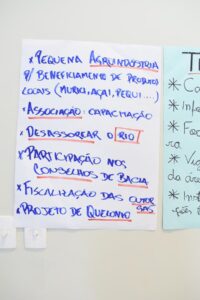 * PEQUENA AGROINDÚSTRIA
P/ BENEFICIAMENTO DE PRODUTOS
LOCAIS (MURICI, AÇAI, PEQUI....)
* ASSOCIAÇÃO: CAPACITAÇÃO
* DESASSOREAR O RIO
* PARTICIPAÇÃO NOS
CONSELHOS DE BACIA
* FISCALIZAÇÃO DAS
* PROJETO DE
T
* Ca
* Inf
* Foo
ra
* Vig
da ár
* Inst